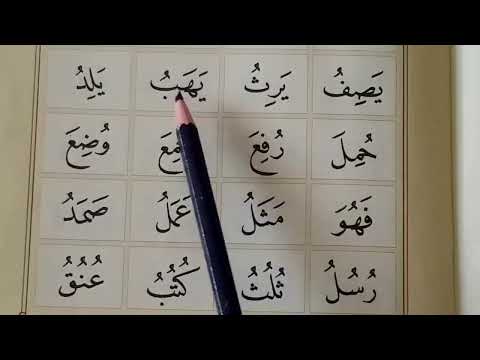 يَصِفُ يَرِثُ يَهَبُ يَلِدُ
حُمِلَ رُفِعَ وُضِعَ
فَهُوَ مَثَلُ عَمَلُ صَمَدُ
رُسُلُ ثُلُثُ كُتُبُ عُنُقُ